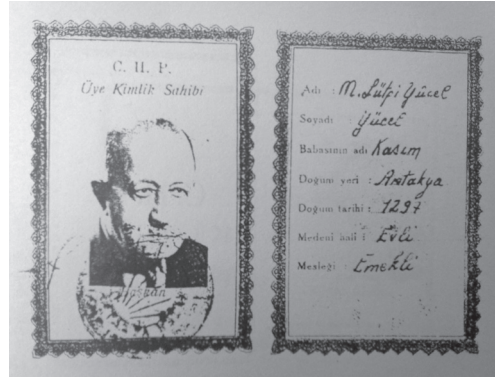 C. H. P.
Üye Kimlik Sahibi
Başkan
Adı : M. Lütfi Yücel
Soyadı : Yücel
Babasının adı Kasım
Doğum yeri : Antakya
Doğum tarihi : 1297
Medeni hali : Evli
Mesleği : Emekli